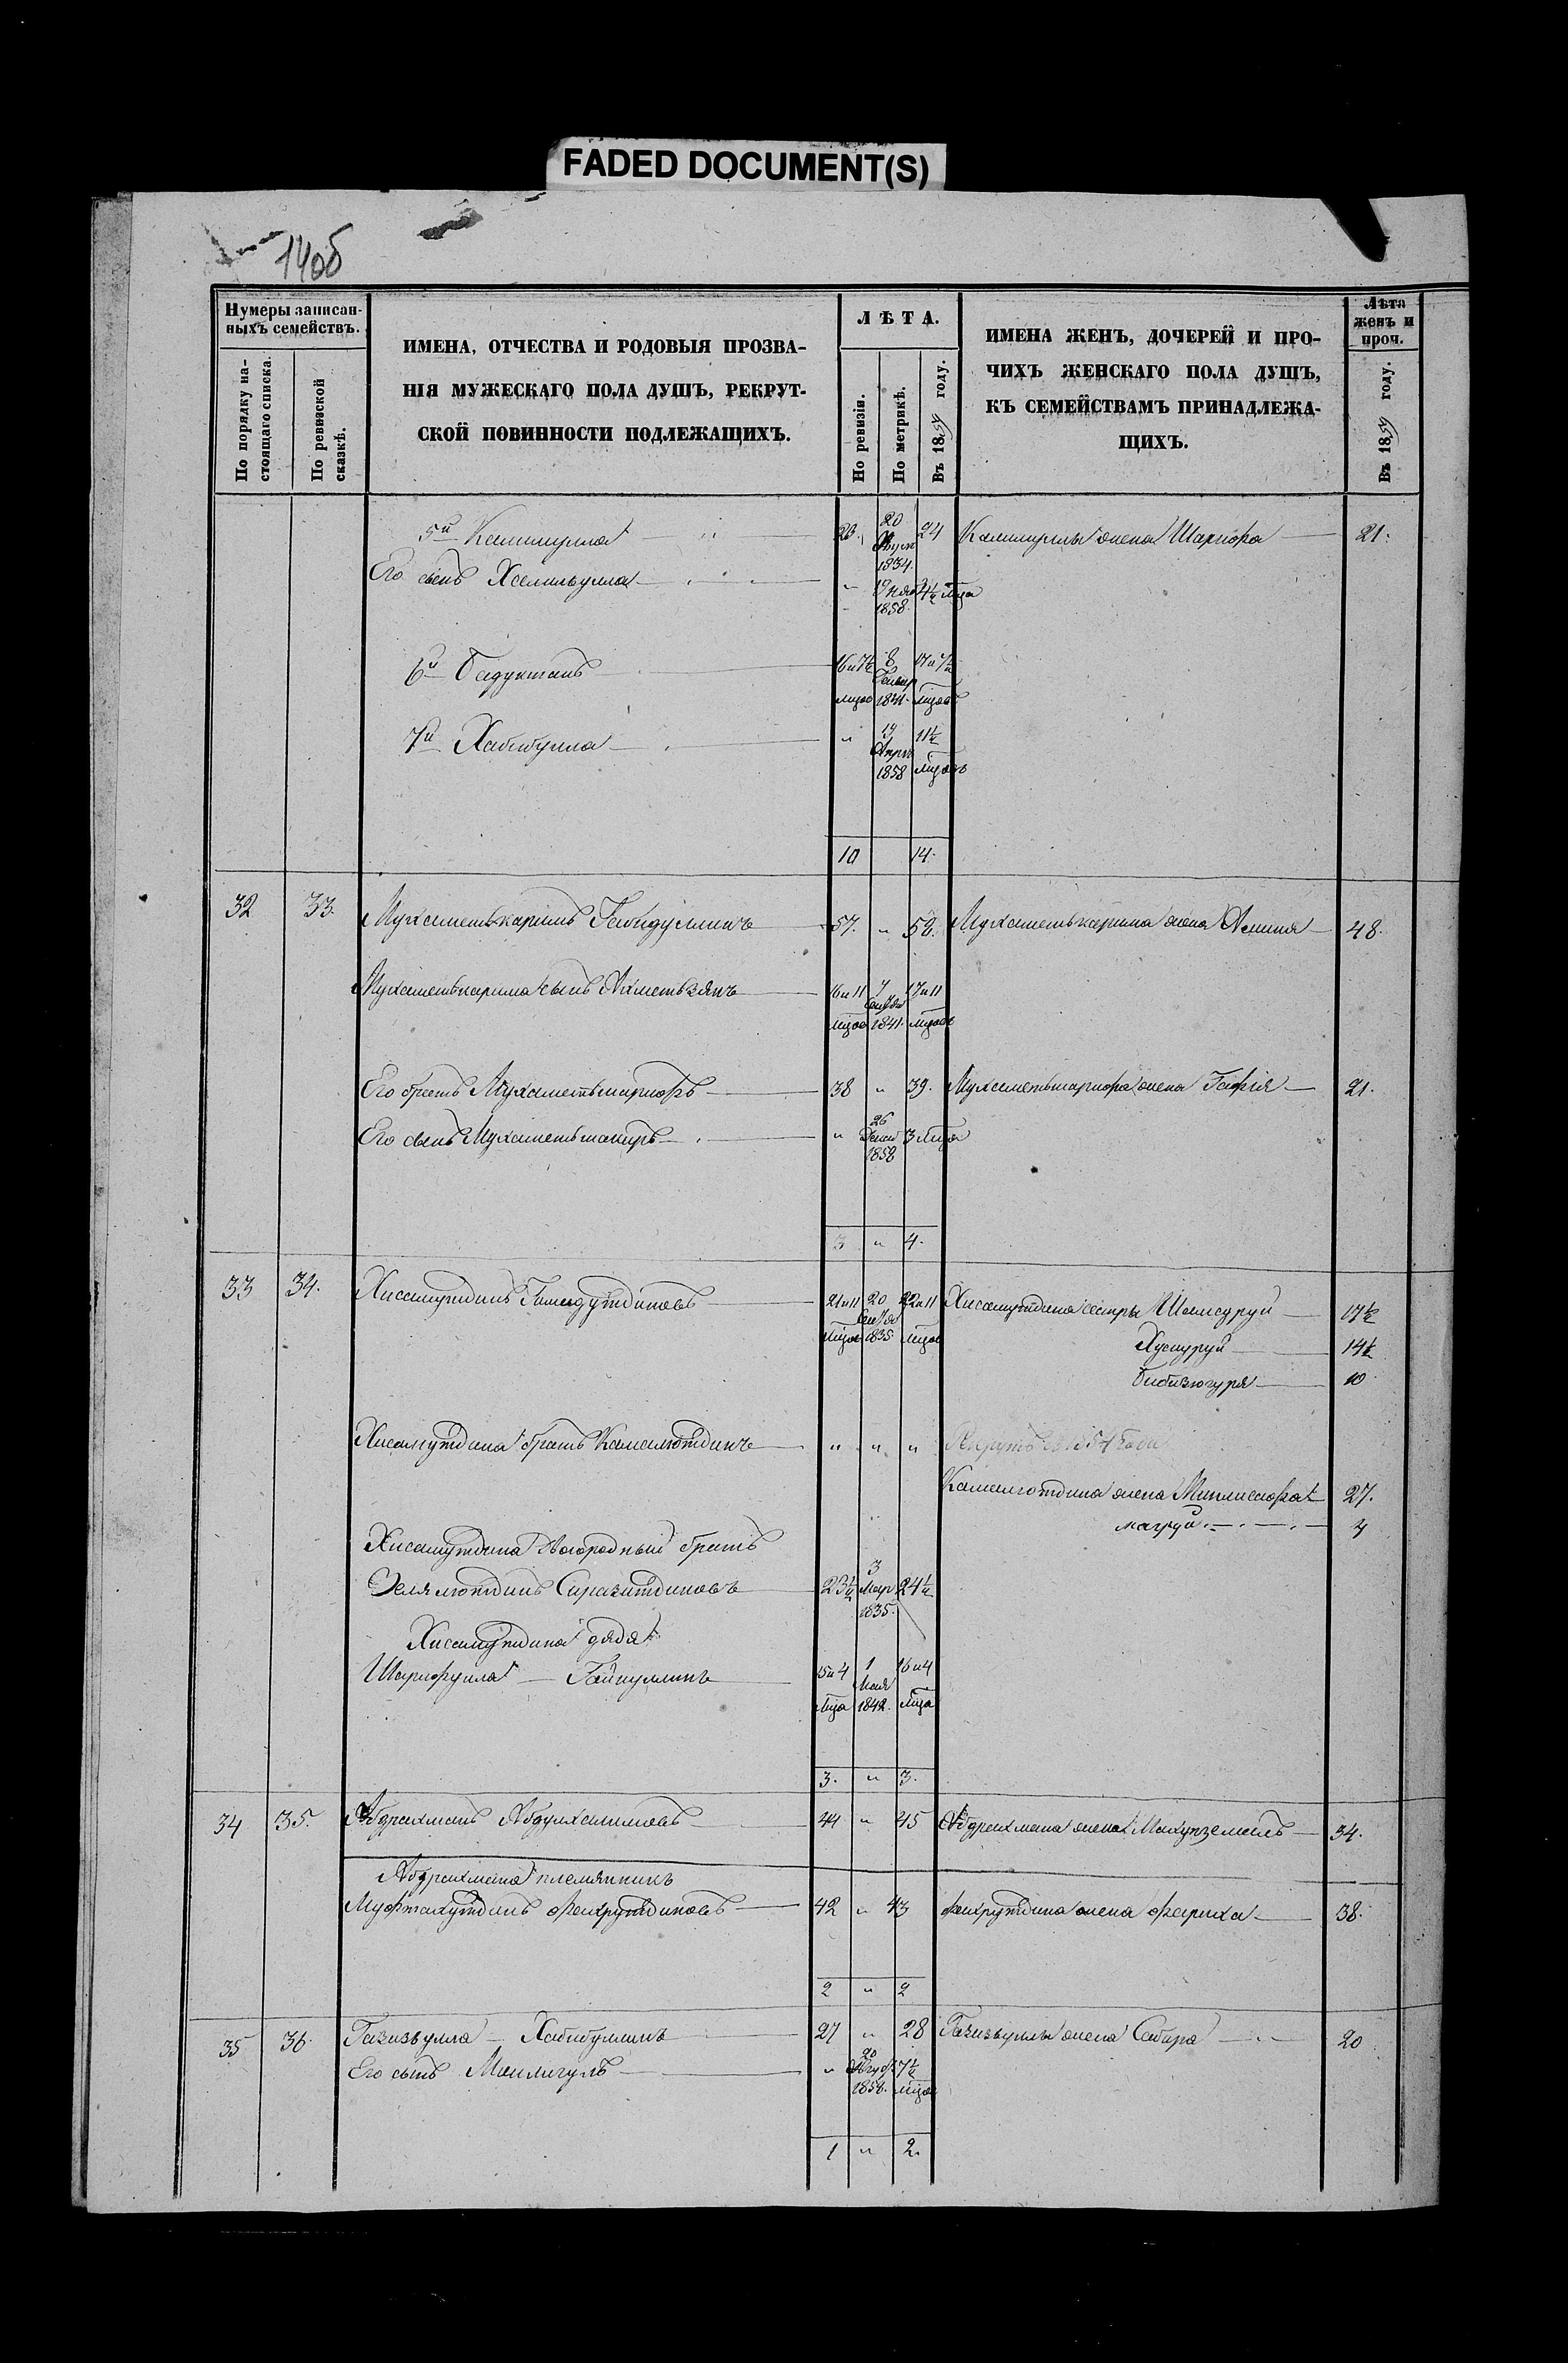 FADED DOCUMENT(S)
14об
Нумеры записан-
ныхъ семействъ.
По порядку на-
стоящаго списка.
По ревизской
сказкѣ.
ИМЕНА, ОТЧЕСТВА И РОДОВЫЯ ПРОЗВА-
НІЯ МУЖЕСКАГО ПОЛА ДУШЪ, РЕКРУТ-
СКОЙ ПОВИННОСТИ ПОДЛЕЖАЩИХЪ.
ЛѢТА.
По ревизіи.
По метрикѣ.
Въ 1859 году.
ИМЕНА ЖЕНЪ, ДОЧЕРЕЙ И ПРО-
ЧИХЪ ЖЕНСКАГО ПОЛА ДУШЪ,
КЪ СЕМЕЙСТВАМЪ ПРИНАДЛЕЖА-
ЩИХЪ.
Лѣта
женъ и
проч.
Въ 1859 году.
5й 23. 20 1834. 24 жена Шарифа 21.
Его сынъ " 1858. 4½ мца
6й 16 и 7½ мцов 8 1841. 17 и 7½ мцовъ
7й Хабибулла " 19 Апрл 1858 11½ мцовъ
10 14.
32 33. Мухаметькаримъ Габидуллинъ 57. " 58. Мухаметькарима жена 48.
Мухаметькарима сынъ Ахметьзянъ 16 и 11 мцов 7 1841. 17 и 11 мцовъ
Его братъ Мухаметьшарифъ 38 " 39. Мухаметьшарифа жена Гафія 21.
Его сынъ Мухаметьшакиръ " 26 1858 3 мца
3 " 4.
33 34. Хисамутдинъ 21 и 11 мцов 20 1835 22 и 11 мцов Хисамутдина сестры Шамсуруй 17½
Хуснуруй 14½
10
Хисамутдина братъ Камалютдинъ " " " Рекрутъ въ 1854 годѣ
Камалютдина жена 27.
магруй 4
Хисамутдина двоюродный братъ
Зелялютдинъ Сиразитдиновъ 23½ 3 Мар 1835. 24½
Хисамутдина дядя
Шарифулла Гайнуллинъ 15 и 4 мца 1 Мая 1842. 16 и 4 мца
3. " 3.
34 35. Абдрахманъ Абдулхалимовъ 44 " 45 Абдрахмана жена 34.
Абдрахмана племянникъ
Муфтахутдинъ Фахрутдиновъ 42 " 43 Фахрутдина жена Фариха 38.
2 " 2
35 36. Газизьулла Хабибуллинъ 27 " 28 Газизьуллы жена Сабира 20
Его сынъ " 20 1858. 7½ мцов
1 " 2.